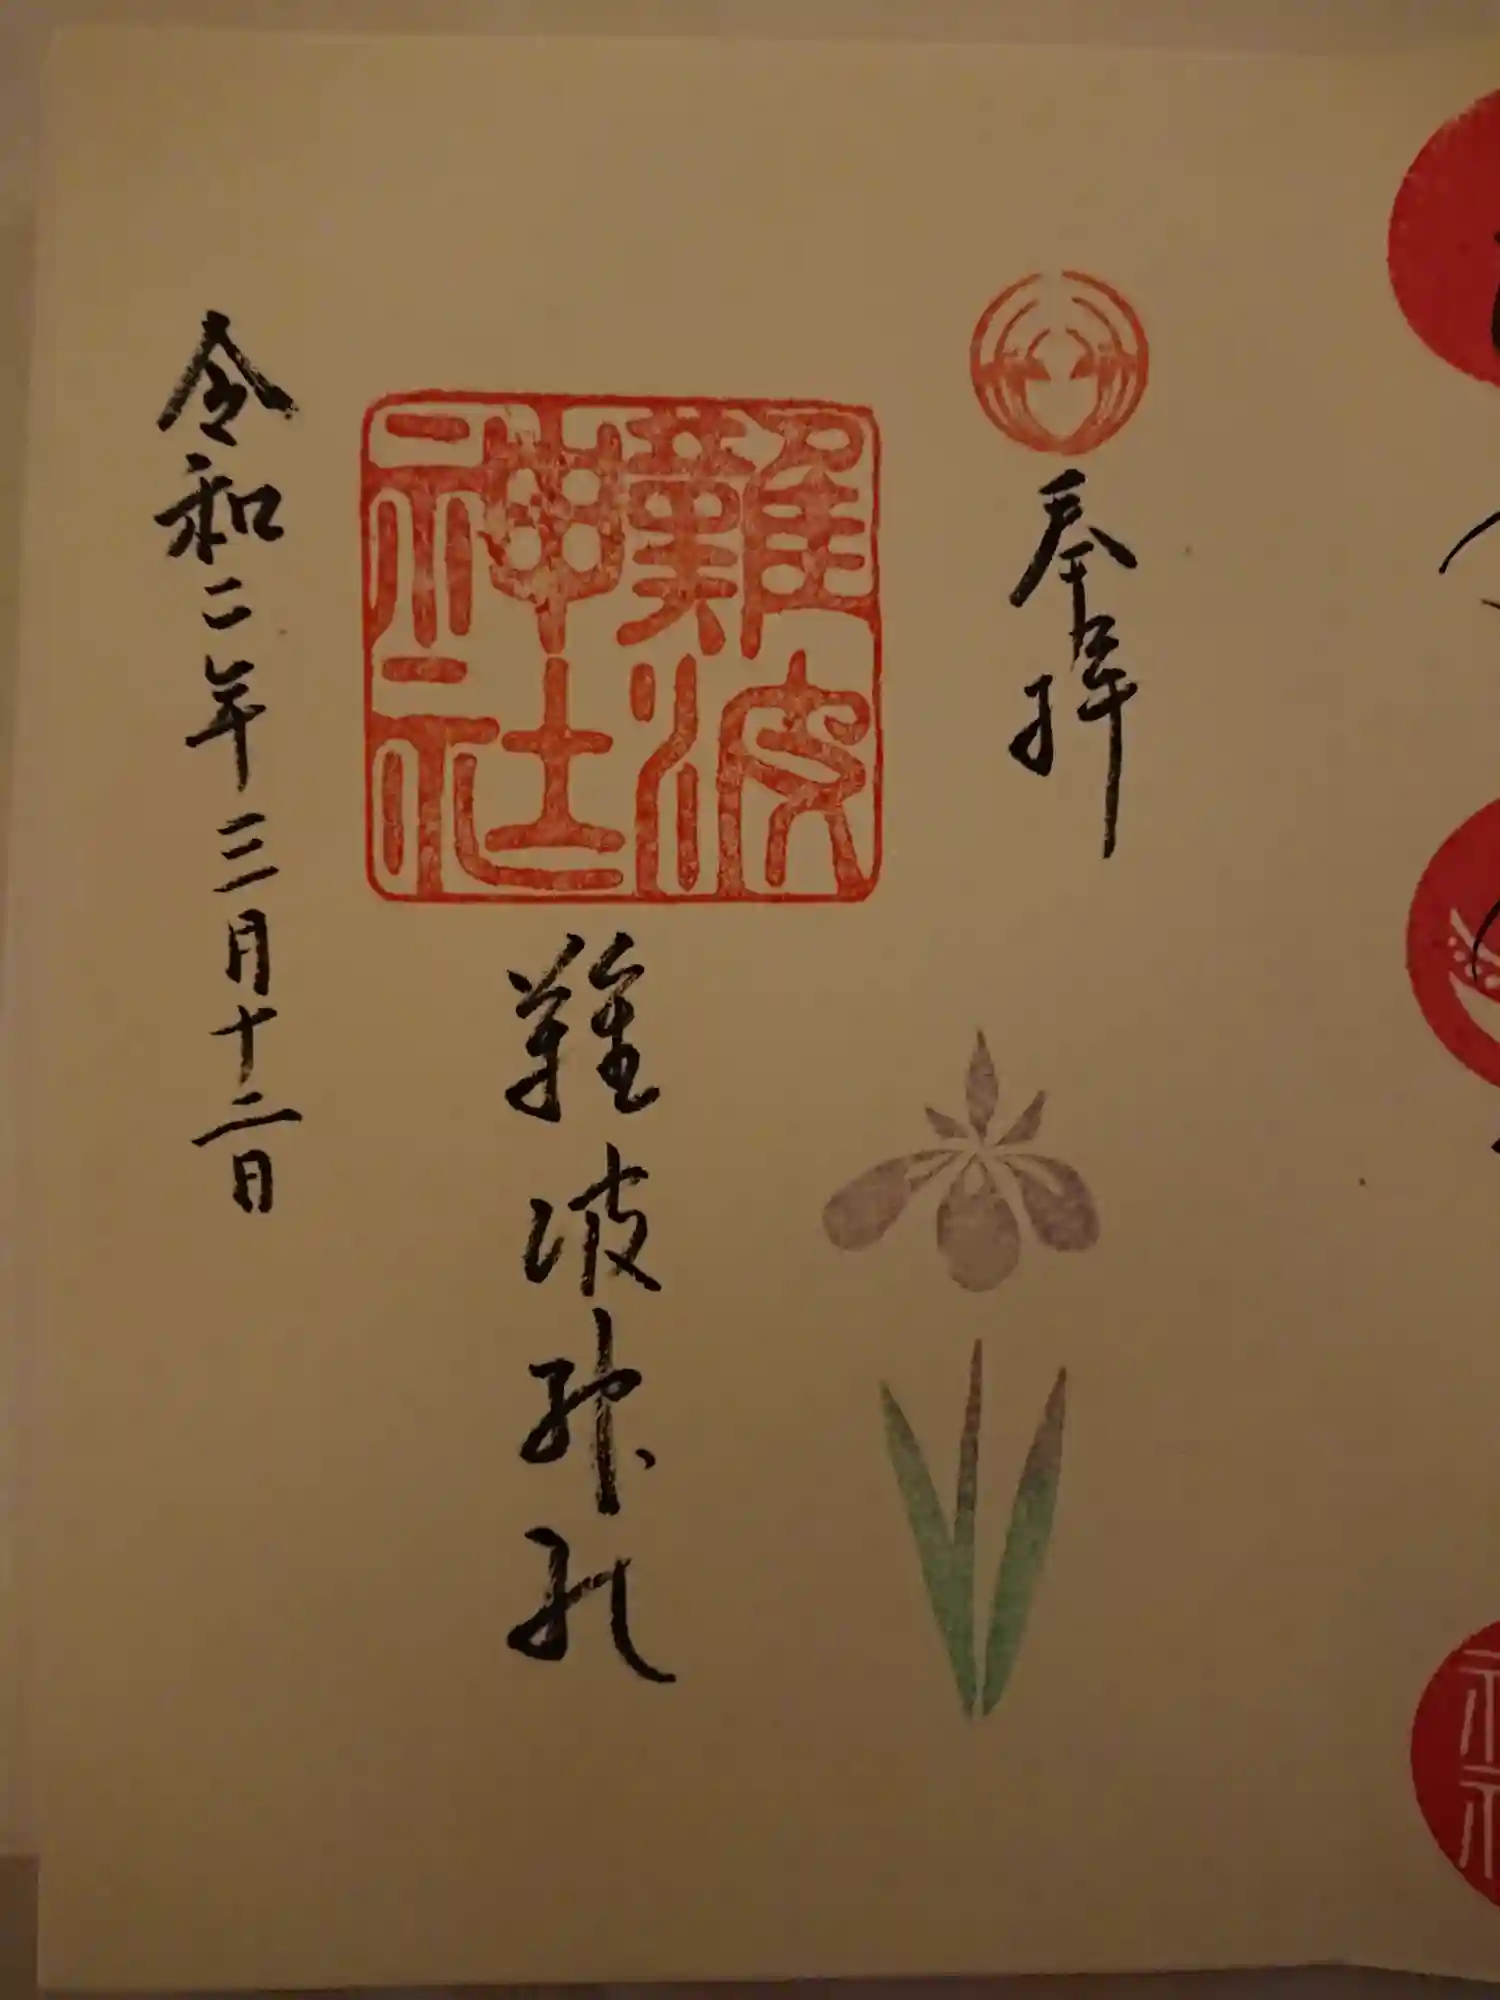 奉拝
難波
神社
難波神社
令和二年三月十二日